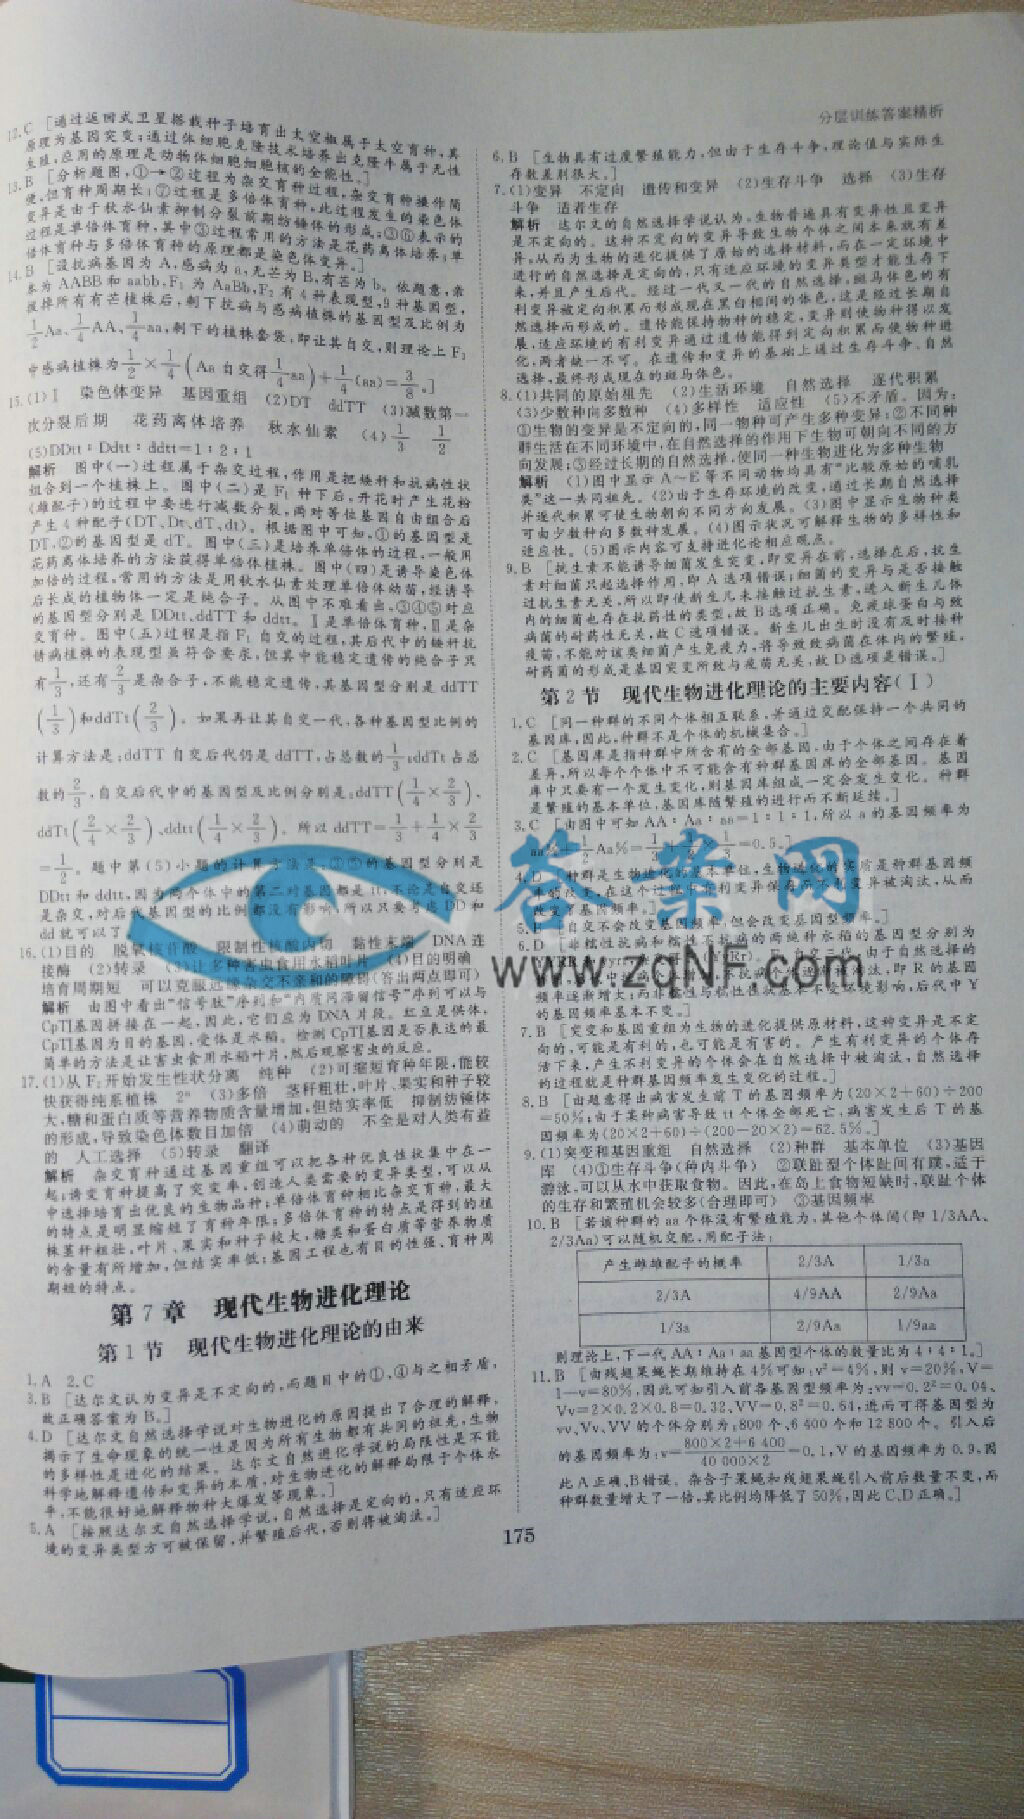 分层训练答案精析
12.C [通过返回式卫星搭载种子培育出太空椒属于太空育种,其
原理为基因突变;通过体细胞克隆技术培养出克隆牛属于无性
生殖,应用的原理是动物体细胞细胞核的全能性。]
13.B [分析题图,①→②过程为杂交育种过程,杂交育种操作简
便,但育种周期长;⑦过程是多倍体育种,此过程发生的染色体
变异是由于秋水仙素抑制分裂前期纺锤体的形成;③⑥表示的
过程是单倍体育种,其中③过程常用的方法是花药离体培养;单
倍体育种与多倍体育种的原理都是染色体变异。]
14.B [设抗病基因为A,感病为a,无芒为B,有芒为b。依题意,亲
本为AABB和aabb,F₁为AaBb,F₂有4种表现型,9种基因型,
拔掉所有有芒植株后,剩下抗病与感病植株的基因型及比例为
1/2Aa、1/4AA、1/4aa,剩下的植株套袋,即让其自交,则理论上F₃
中感病植株为1/2×1/4(Aa自交得1/4aa)+1/4(aa)=3/8。]
15.(1)Ⅰ 染色体变异 基因重组 (2)DT ddTT (3)减数第一
次分裂后期 花药离体培养 秋水仙素 (4)1/3 1/2
(5)DDtt∶Ddtt∶ddtt=1∶2∶1
解析 图中(一)过程属于杂交过程,作用是把矮秆和抗病性状
组合到一个植株上。图中(二)是F₁种下后,开花时产生花粉
(雄配子)的过程中要进行减数分裂,两对等位基因自由组合后
产生4种配子(DT、Dt、dT、dt)。根据图中可知,①的基因型是
DT,②的基因型是dT。图中(三)是培养单倍体的过程,一般用
花药离体培养的方法获得单倍体植株。图中(四)是诱导染色体
加倍的过程,常用的方法是用秋水仙素处理单倍体幼苗,经诱导
后长成的植物体一定是纯合子。从图中不难看出,③④⑤对应
的基因型分别是DDtt、ddTT和ddtt。Ⅰ是单倍体育种,Ⅱ是杂
交育种。图中(五)过程是指F₁自交的过程,其后代中的矮秆抗
锈病植株的表现型虽符合要求,但其中能稳定遗传的纯合子只
有1/3,还有2/3是杂合子,不能稳定遗传,其基因型分别是ddTT
(1/3)和ddTt(2/3)。如果再让其自交一代,各种基因型比例的
计算方法是:ddTT自交后代仍是ddTT,占总数的1/3;ddTt占总
数的2/3,自交后代中的基因型及比例分别是:ddTT(1/4×2/3)、
ddTt(2/4×2/3)、ddtt(1/4×2/3)。所以ddTT=1/3+1/4×2/3
=1/2。题中第(5)小题的计算方法是,③⑤的基因型分别是
DDtt和ddtt,因为两个体中的第二对基因都是tt,不论是自交还
是杂交,对后代基因型的比例都没有影响,所以只要考虑DD和
dd就可以了。
16.(1)目的 脱氧核苷酸 限制性核酸内切 黏性末端 DNA连
接酶 (2)转录 (3)让多种害虫食用水稻叶片 (4)目的明确
培育周期短 可以克服远缘杂交不亲和的障碍(答出两点即可)
解析 由图中看出"信号肽"序列和"内质网滞留信号"序列可以与
CpTI基因拼接在一起,因此,它们应为DNA片段。豇豆是供体,
CpTI基因为目的基因,受体是水稻。检测CpTI基因是否表达的最
简单的方法是让害虫食用水稻叶片,然后观察害虫的反应。
17.(1)从F₂开始发生性状分离 纯种 (2)可缩短育种年限,能较
快获得纯系植株 2ⁿ (3)多倍 茎秆粗壮,叶片、果实和种子较
大,糖和蛋白质等营养物质含量增加,但结实率低 抑制纺锤体
的形成,导致染色体数目加倍 (4)萌动的 不全是对人类有益
的 人工选择 (5)转录 翻译
解析 杂交育种通过基因重组可以把各种优良性状集中在一
起;诱变育种提高了突变率,创造人类需要的变异类型,可以从
中选择培育出优良的生物品种;单倍体育种相比杂交育种,最大
的特点是明显缩短了育种年限;多倍体育种的特点是得到的植
株茎秆粗壮,叶片、果实和种子较大,糖类和蛋白质等营养物质
的含量有所增加,但结实率低;基因工程也有目的性强、育种周
期短的特点。
第7章 现代生物进化理论
第1节 现代生物进化理论的由来
1.A 2.C
3.B [达尔文认为变异是不定向的,而题目中的①、④与之相矛盾,
故正确答案为B。]
4.D [达尔文自然选择学说对生物进化的原因提出了合理的解释,
揭示了生命现象的统一性是因为所有生物都有共同的祖先,生物
的多样性是进化的结果。达尔文自然进化学说的局限性是不能
科学地解释遗传和变异的本质,对生物进化的解释局限于个体水
平,不能很好地解释物种大爆发等现象。]
5.A [按照达尔文自然选择学说,自然选择是定向的,只有适应环
境的变异类型方可被保留,并繁殖后代,否则将被淘汰。]
6.B [生物具有过度繁殖能力,但由于生存斗争,理论值与实际生
存数差别很大。]
7.(1)变异 不定向 遗传和变异 (2)生存斗争 选择 (3)生存
斗争 适者生存
解析 达尔文的自然选择学说认为,生物普遍具有变异性且变异
是不定向的。这种不定向的变异导致生物个体之间本来就有差
异,从而为生物的进化提供了原始的选择材料,而在一定环境中
进行的自然选择是定向的,只有适应环境的变异类型才能生存下
来,并且产生后代。经过一代又一代的自然选择,斑马体色的有
利变异被定向积累而形成现在黑白相间的体色,这是经过长期自
然选择而形成的。遗传能保持物种的稳定,变异则使物种得以发
展,适应环境的有利变异通过遗传能得到定向积累而使物种进
化,两者缺一不可。在遗传和变异的基础上通过生存斗争、自然
选择,最终形成现在的斑马体色。
8.(1)共同的原始祖先 (2)生活环境 自然选择 逐代积累
(3)少数种向多数种 (4)多样性 适应性 (5)不矛盾。因为:
①生物的变异是不定向的,同一物种可产生多种变异;②不同种
群生活在不同环境中,在自然选择的作用下生物可朝向不同的方
向发展;③经过长期的自然选择,使同一种生物进化为多种生物
解析 (1)图中显示A~E等不同动物均具有"比较原始的哺乳
类"这一共同祖先。(2)由于生存环境的改变,通过长期自然选择
并逐代积累可使生物朝向不同方向发展。(3)图中显示生物种类
可由少数种向多数种发展。(4)图示状况可解释生物的多样性和
适应性。(5)图示内容可支持进化论相应观点。
9.B [抗生素不能诱导细菌发生突变,即变异在前,选择在后,抗生
素对细菌只起选择作用,即A选项错误;细菌的变异与是否接触
过抗生素无关,所以即使新生儿未接触过抗生素,进入新生儿体
内的细菌也存在抗药性的类型,故B选项正确。免疫球蛋白与致
病菌的耐药性无关,故C选项错误。新生儿出生时没有及时接种
疫苗,不能对该类细菌产生免疫力,将导致致病菌在体内的繁殖,
耐药菌的形成是基因突变所致与疫苗无关,故D选项是错误。]
第2节 现代生物进化理论的主要内容(Ⅰ)
1.C [同一种群的不同个体相互联系,并通过交配保持一个共同的
基因库,因此,种群不是个体的机械集合。]
2.C [基因库是指种群中所含有的全部基因,由于个体之间存在着
差异,所以每个个体中不可能含有种群基因库的全部基因。基因
库中只要有一个发生变化,则基因库组成一定会发生变化。种群
是繁殖的基本单位,基因库随繁殖的进行而不断延续。]
3.C [由图中可知AA∶Aa∶aa=1∶1∶1,所以a的基因频率为
aa%+1/2Aa%=1/3+1/2×1/3=0.5。]
4.D [种群是生物进化的基本单位,生物进化的实质是种群基因频
率的改变,在这个过程中有利变异保存而不利变异被淘汰,从而
改变了基因频率。]
5.B [自交不会改变基因频率,但会改变基因型频率。]
6.D [非糯性抗病和糯性不抗病的两纯种水稻的基因型分别为
由于自然选择的
即R的基因
频率逐渐增大;而非糯性与糯性性状基本不受环境影响,后代中Y
的基因频率基本不变。]
7.B [突变和基因重组为生物的进化提供原材料,这种变异是不定
向的,可能是有利的,也可能是有害的。产生有利变异的个体存
活下来,产生不利变异的个体会在自然选择中被淘汰,自然选择
的过程就是种群基因频率发生变化的过程。]
8.B [由题意得出病害发生前T的基因频率为(20×2+60)÷200
=50%;由于某种病害导致tt个体全部死亡,病害发生后T的基
因频率为(20×2+60)÷(200-20×2)=62.5%。]
9.(1)突变和基因重组 自然选择 (2)种群 基本单位 (3)基因
库 (4)①生存斗争(种内斗争) ②联趾型个体趾间有蹼,适于
游泳,可以从水中获取食物。因此,在岛上食物短缺时,联趾个体
的生存和繁殖机会较多(合理即可) ③基因频率
10.B [若该种群的aa个体没有繁殖能力,其他个体间(即1/3AA、
2/3Aa)可以随机交配,用配子法:
产生雌雄配子的概率 2/3A 1/3a
2/3A 4/9AA 2/9Aa
1/3a 2/9Aa 1/9aa
则理论上,下一代AA∶Aa∶aa基因型个体的数量比为4∶4∶1。]
11.B [由残翅果蝇长期维持在4%可知:v²=4%,则v=20%,V=
1-v=80%,因此可知引入前各基因型频率为:vv=0.2²=0.04、
Vv=2×0.2×0.8=0.32、VV=0.8²=0.64;进而可得基因型为
vv、Vv、VV的个体分别为:800个、6 400个和12 800个。引入后
的基因频率为:v=800×2+6 400/40 000×2=0.1,V的基因频率为0.9,因
此A正确、B错误。杂合子果蝇和残翅果蝇引入前后数量不变,而
种群数量增大了一倍,其比例均降低了50%,因此C、D正确。]
175
答案网
www.zqNF.com